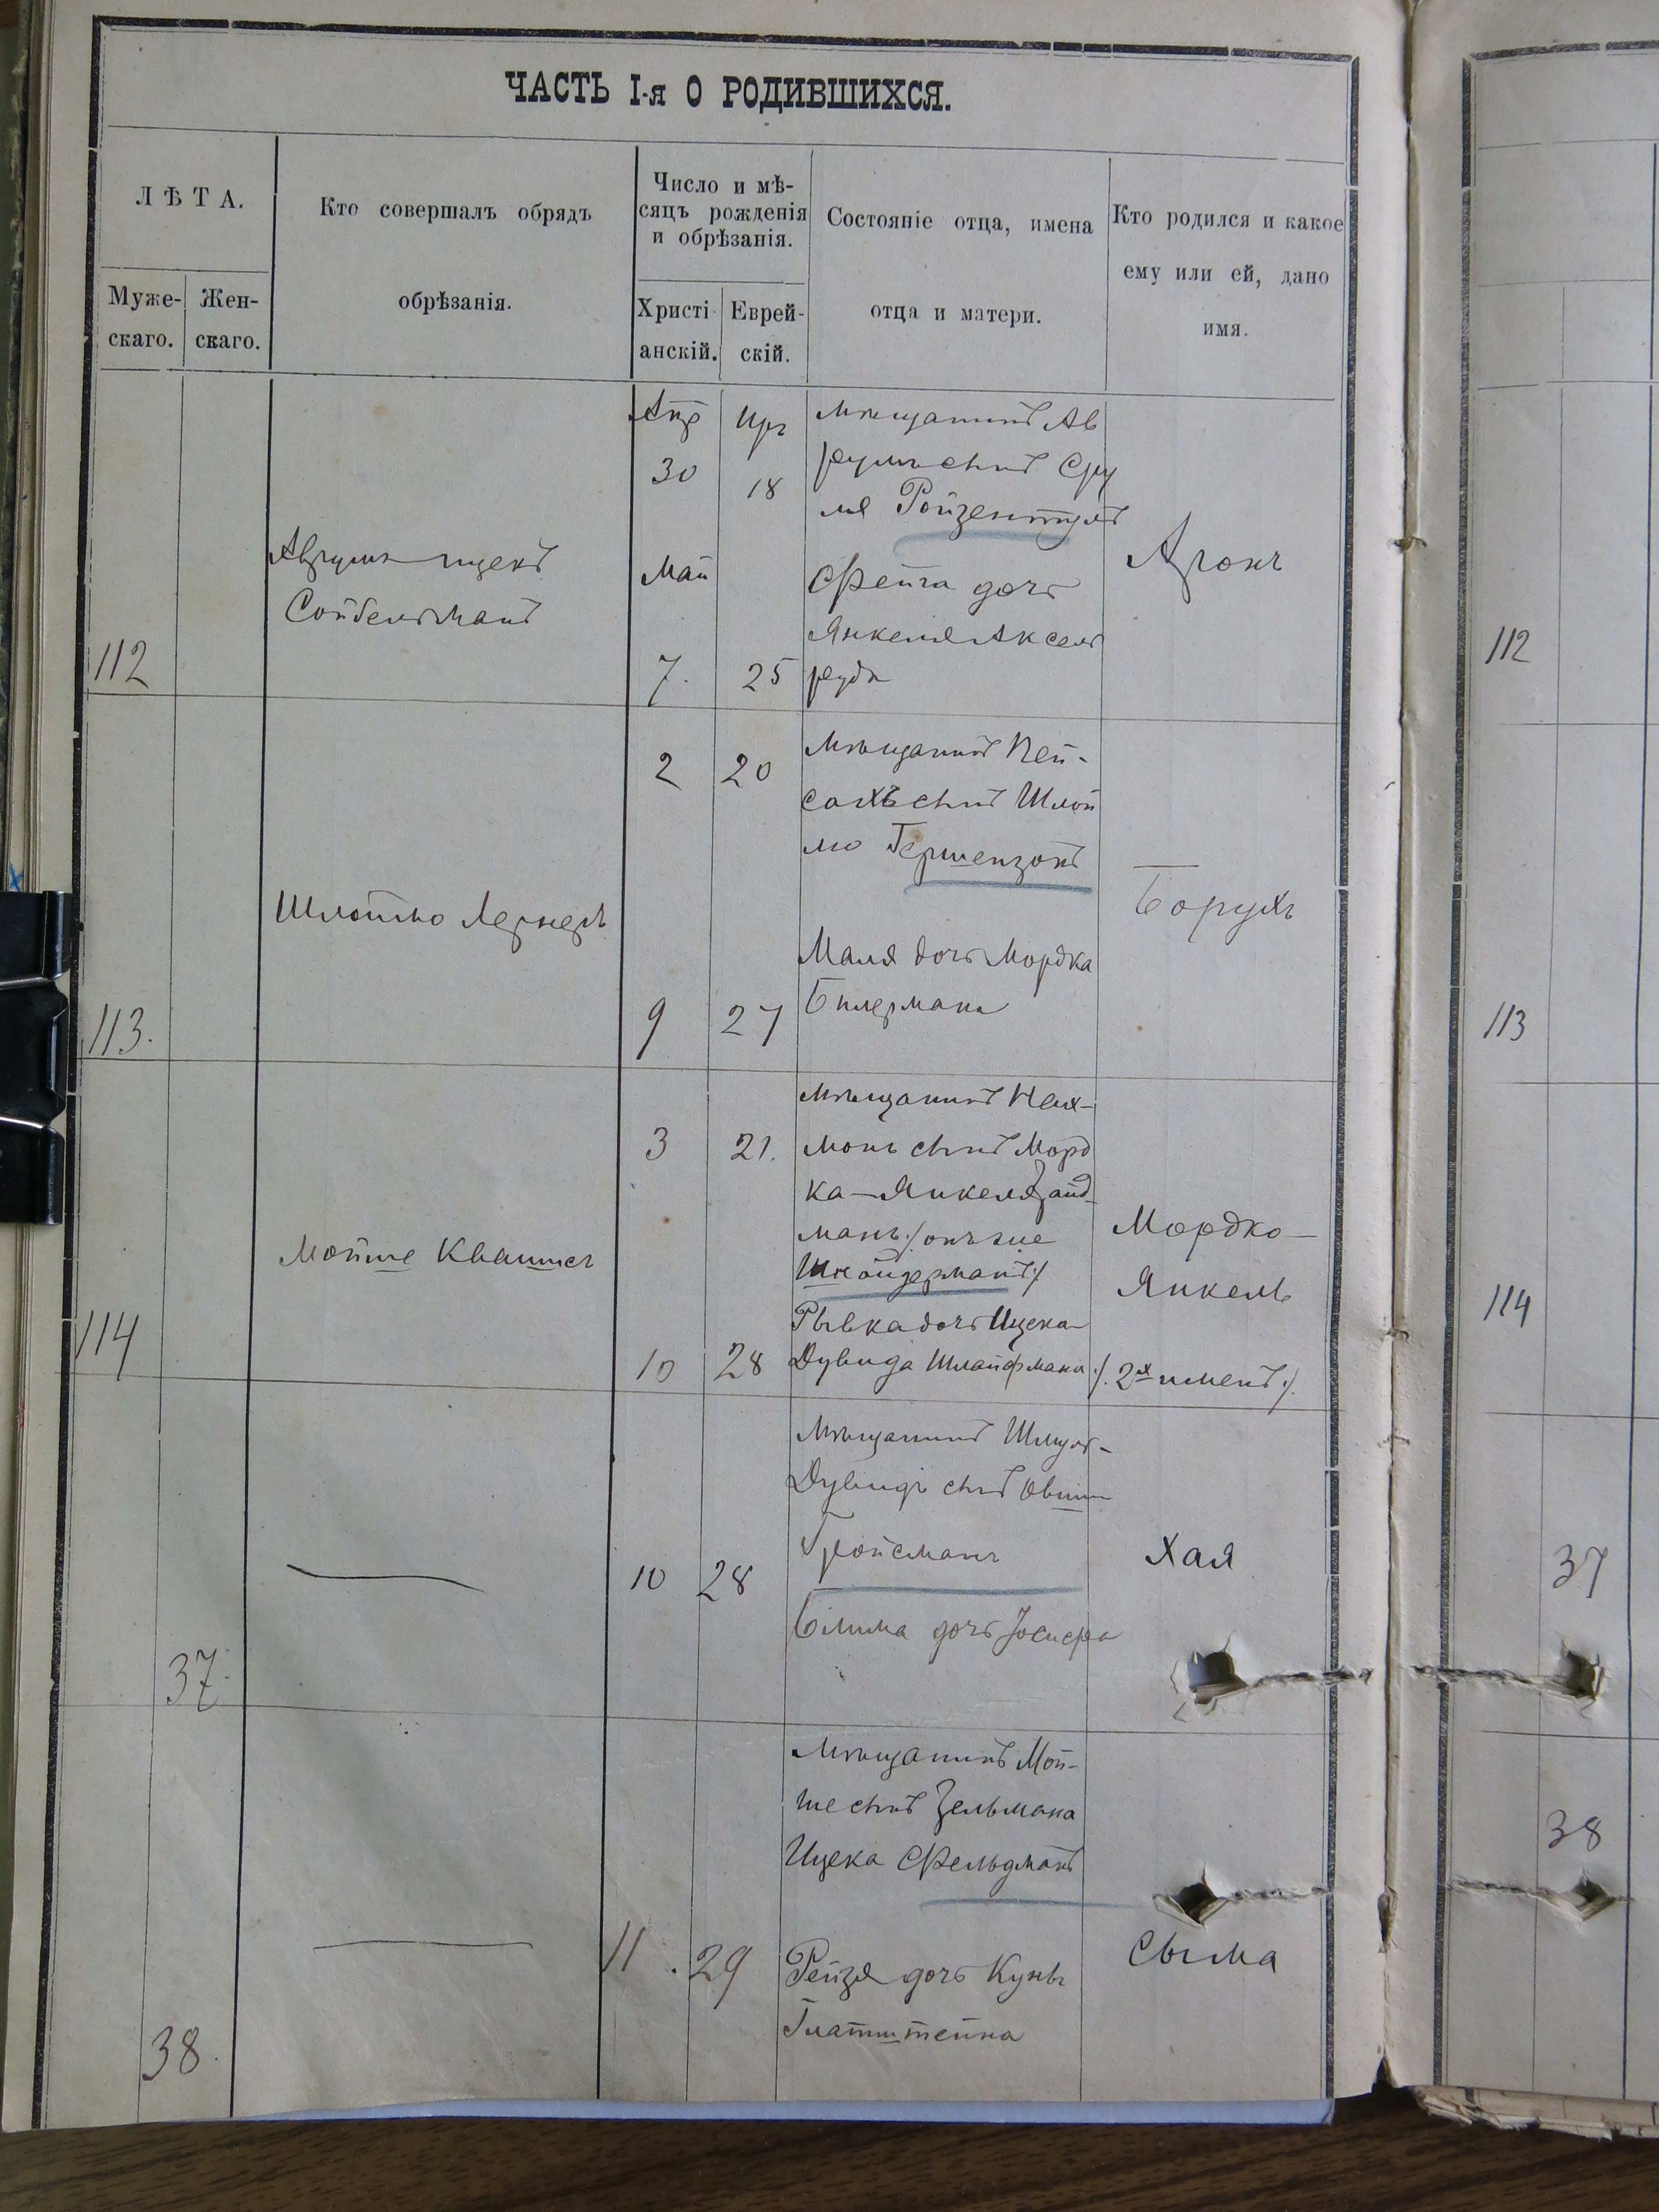 ЧАСТЬ I-я О РОДИВШИХСЯ.
ЛѢТА.
Муже-
скаго.
Жен-
скаго.
Кто совершалъ обрядъ
обрѣзанія.
Число и мѣ-
сяцъ рожденія
и обрѣзанія.
Христі
анскій.
Еврей-
скій.
Состояніе отца, имена
отца и матери.
Кто родился и какое
ему или ей, дано
имя.
112
Аврумъ Ицекъ
Сойбельманъ
Апр
30
Май
7.
Ирг
18
25
Мѣщанинъ Ав
румъ сынъ Сру
ля Ройзентулъ
Фейга дочь
Янкеля Аксель
руда
Аронъ
112
113.
Шлоймо Лернеръ
2
9
20
27
Мѣщанинъ Пей-
сахъ сынъ Шлой
мо Гершензонъ
Маля дочь Мордка
Билермана
Борухъ
113
114
Мойше Квашисъ
3
10
21.
28
Мѣщанинъ Нах-
монъ сынъ Морд
ка-Янкеля Занд-
манъ /: онъ же
Шнайдерманъ :/
Рывка дочь Ицека
Дувида Шлайфмана
Мордко-
Янкель
/: 2хъ именъ :/
114
37.
10
28
Мѣщанинъ Шмуль-
Дувидъ сынъ Овши
Гройсманъ
Блима дочь Іосифа
Хая
37
38.
11
29
Мѣщанинъ Мой-
ше сынъ Зельмана
Ицека Фельдманъ
Рейзя дочь Куны
Глатштейна
Сыма
38